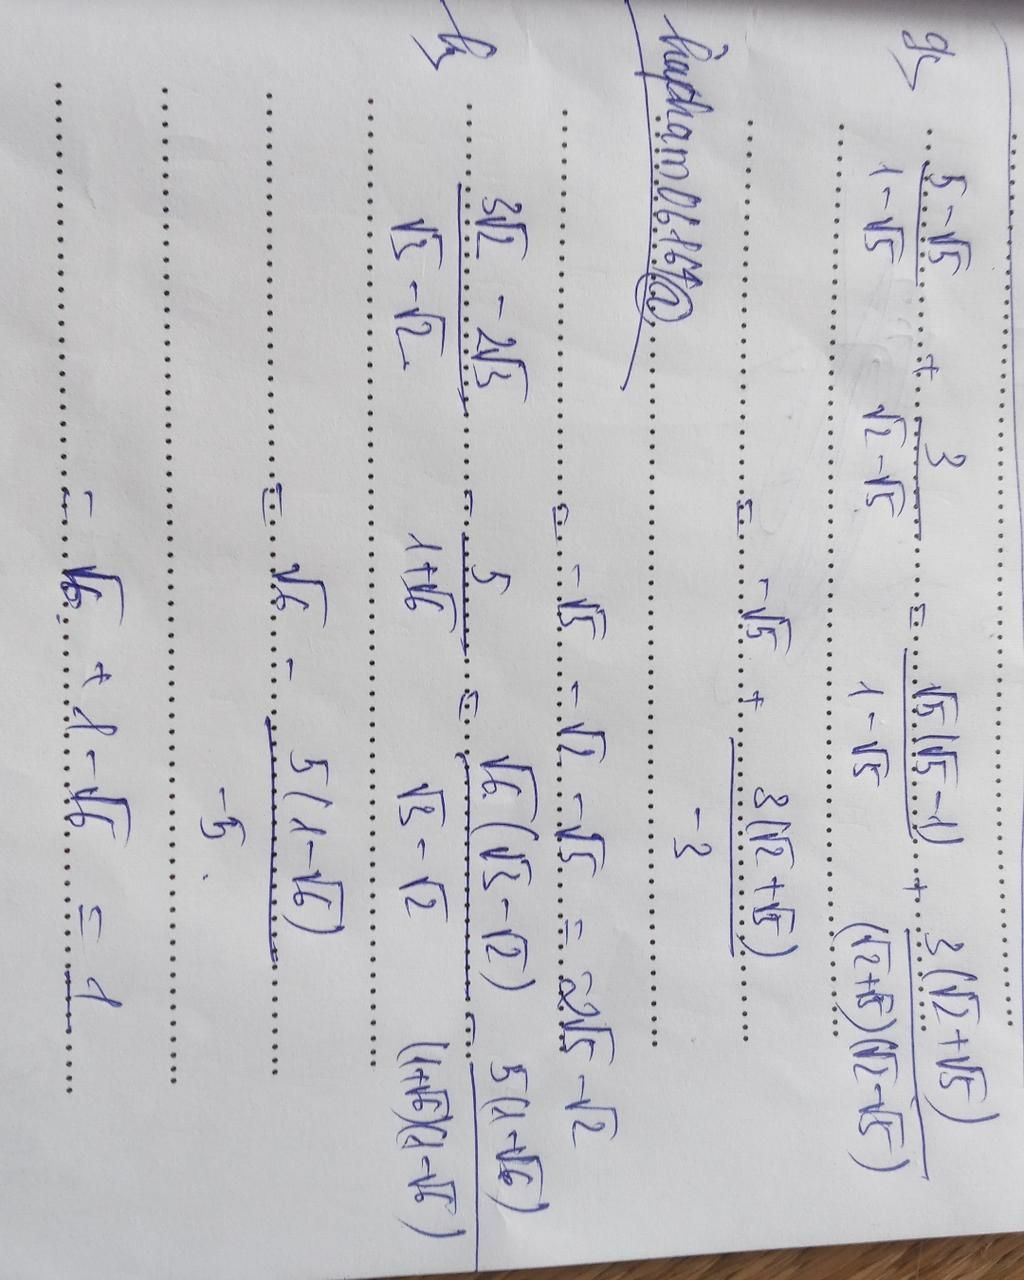 g, (5-√5)/(1-√5) + 3/(√2-√5) = √5(√5-1)/(1-√5) + 3(√2+√5)/((√2+√5)(√2-√5))
= -√5 + 3(√2+√5)/(-3)
haypham06164@
= -√5 - √2 - √5 = -2√5 - √2
h, (3√2 - 2√3)/(√3 - √2) - 5/(1+√6) = √6(√3-√2)/(√3-√2) - 5(1-√6)/((1+√6)(1-√6))
= √6 - 5(1-√6)/(-5)
= √6 + 1 - √6 = 1